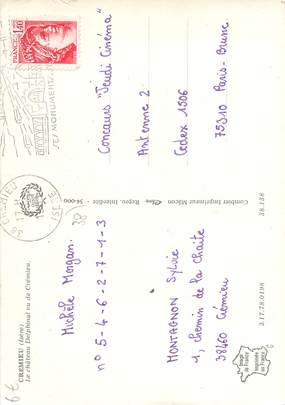 CREMIEU (Isère)
Le château Delphinal vu de Cremieu.
Michèle Morgan.
n° 5-4-6-2-7-1-3
MONTAGNON Sylvie
1, Chemin de la Chaite
38460 Crémieu
3.17.78.0198
Image de France
Imprimée en France
Combier Imprimeur Mâcon
38.138
Repro. Interdite
34-000
38
6 €
FRANCE
1,40
SES MONUMENTS
38 CREMIEU
ISERE
Concours "Jeudi Cinéma"
Antenne 2
Cedex 1506
75310 Paris-Brune